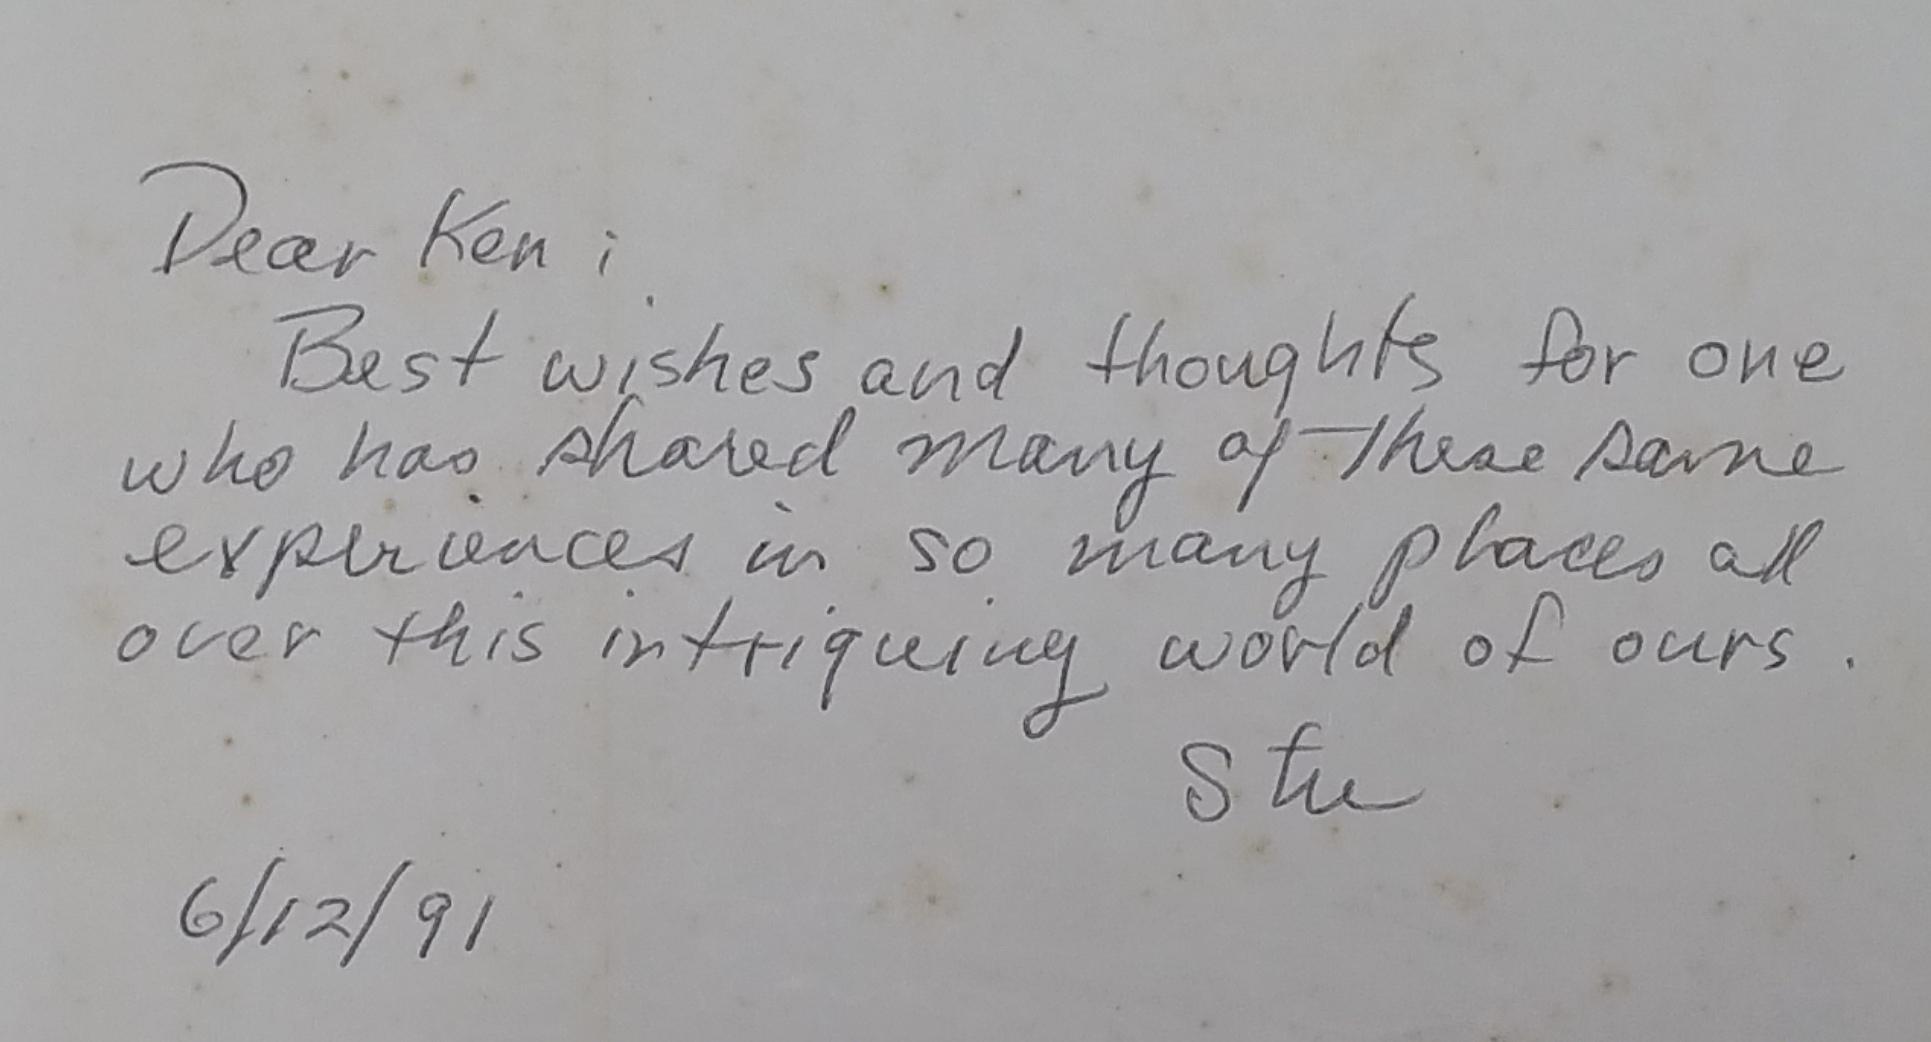 Dear Ken:
Best wishes and thoughts for one
who has shared many of these same
experiences in so many places all
over this intriqueing world of ours.
Stu
6/12/91